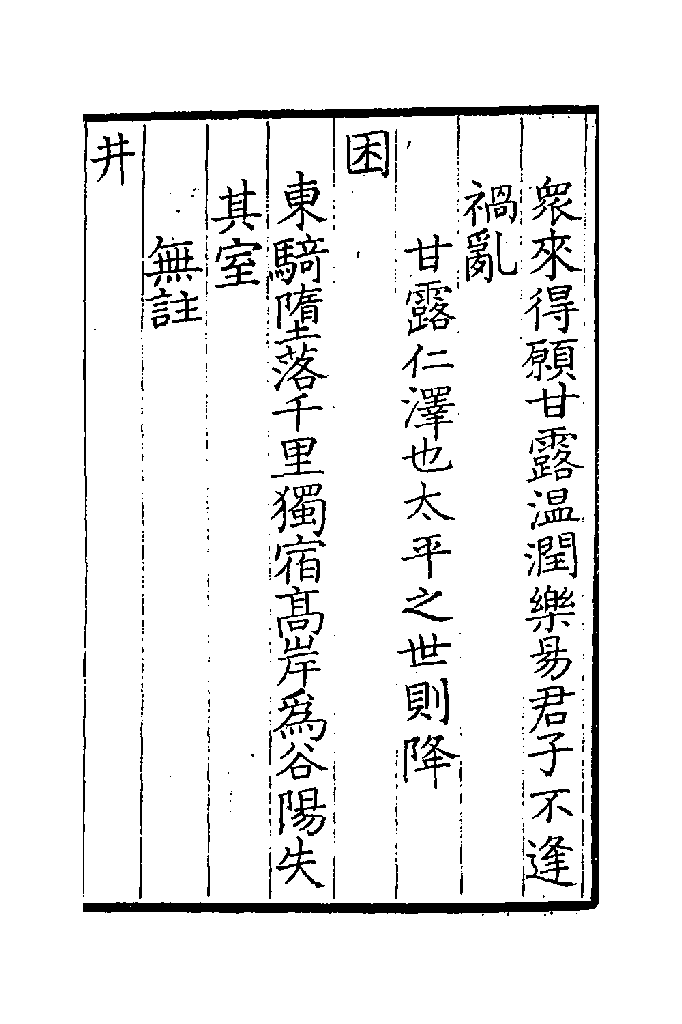 衆來得願甘露温潤樂易君子不逢
禍亂
甘露仁澤也太平之世則降
困
東騎墮落千里獨宿髙岸為谷陽失
其室
無註
井